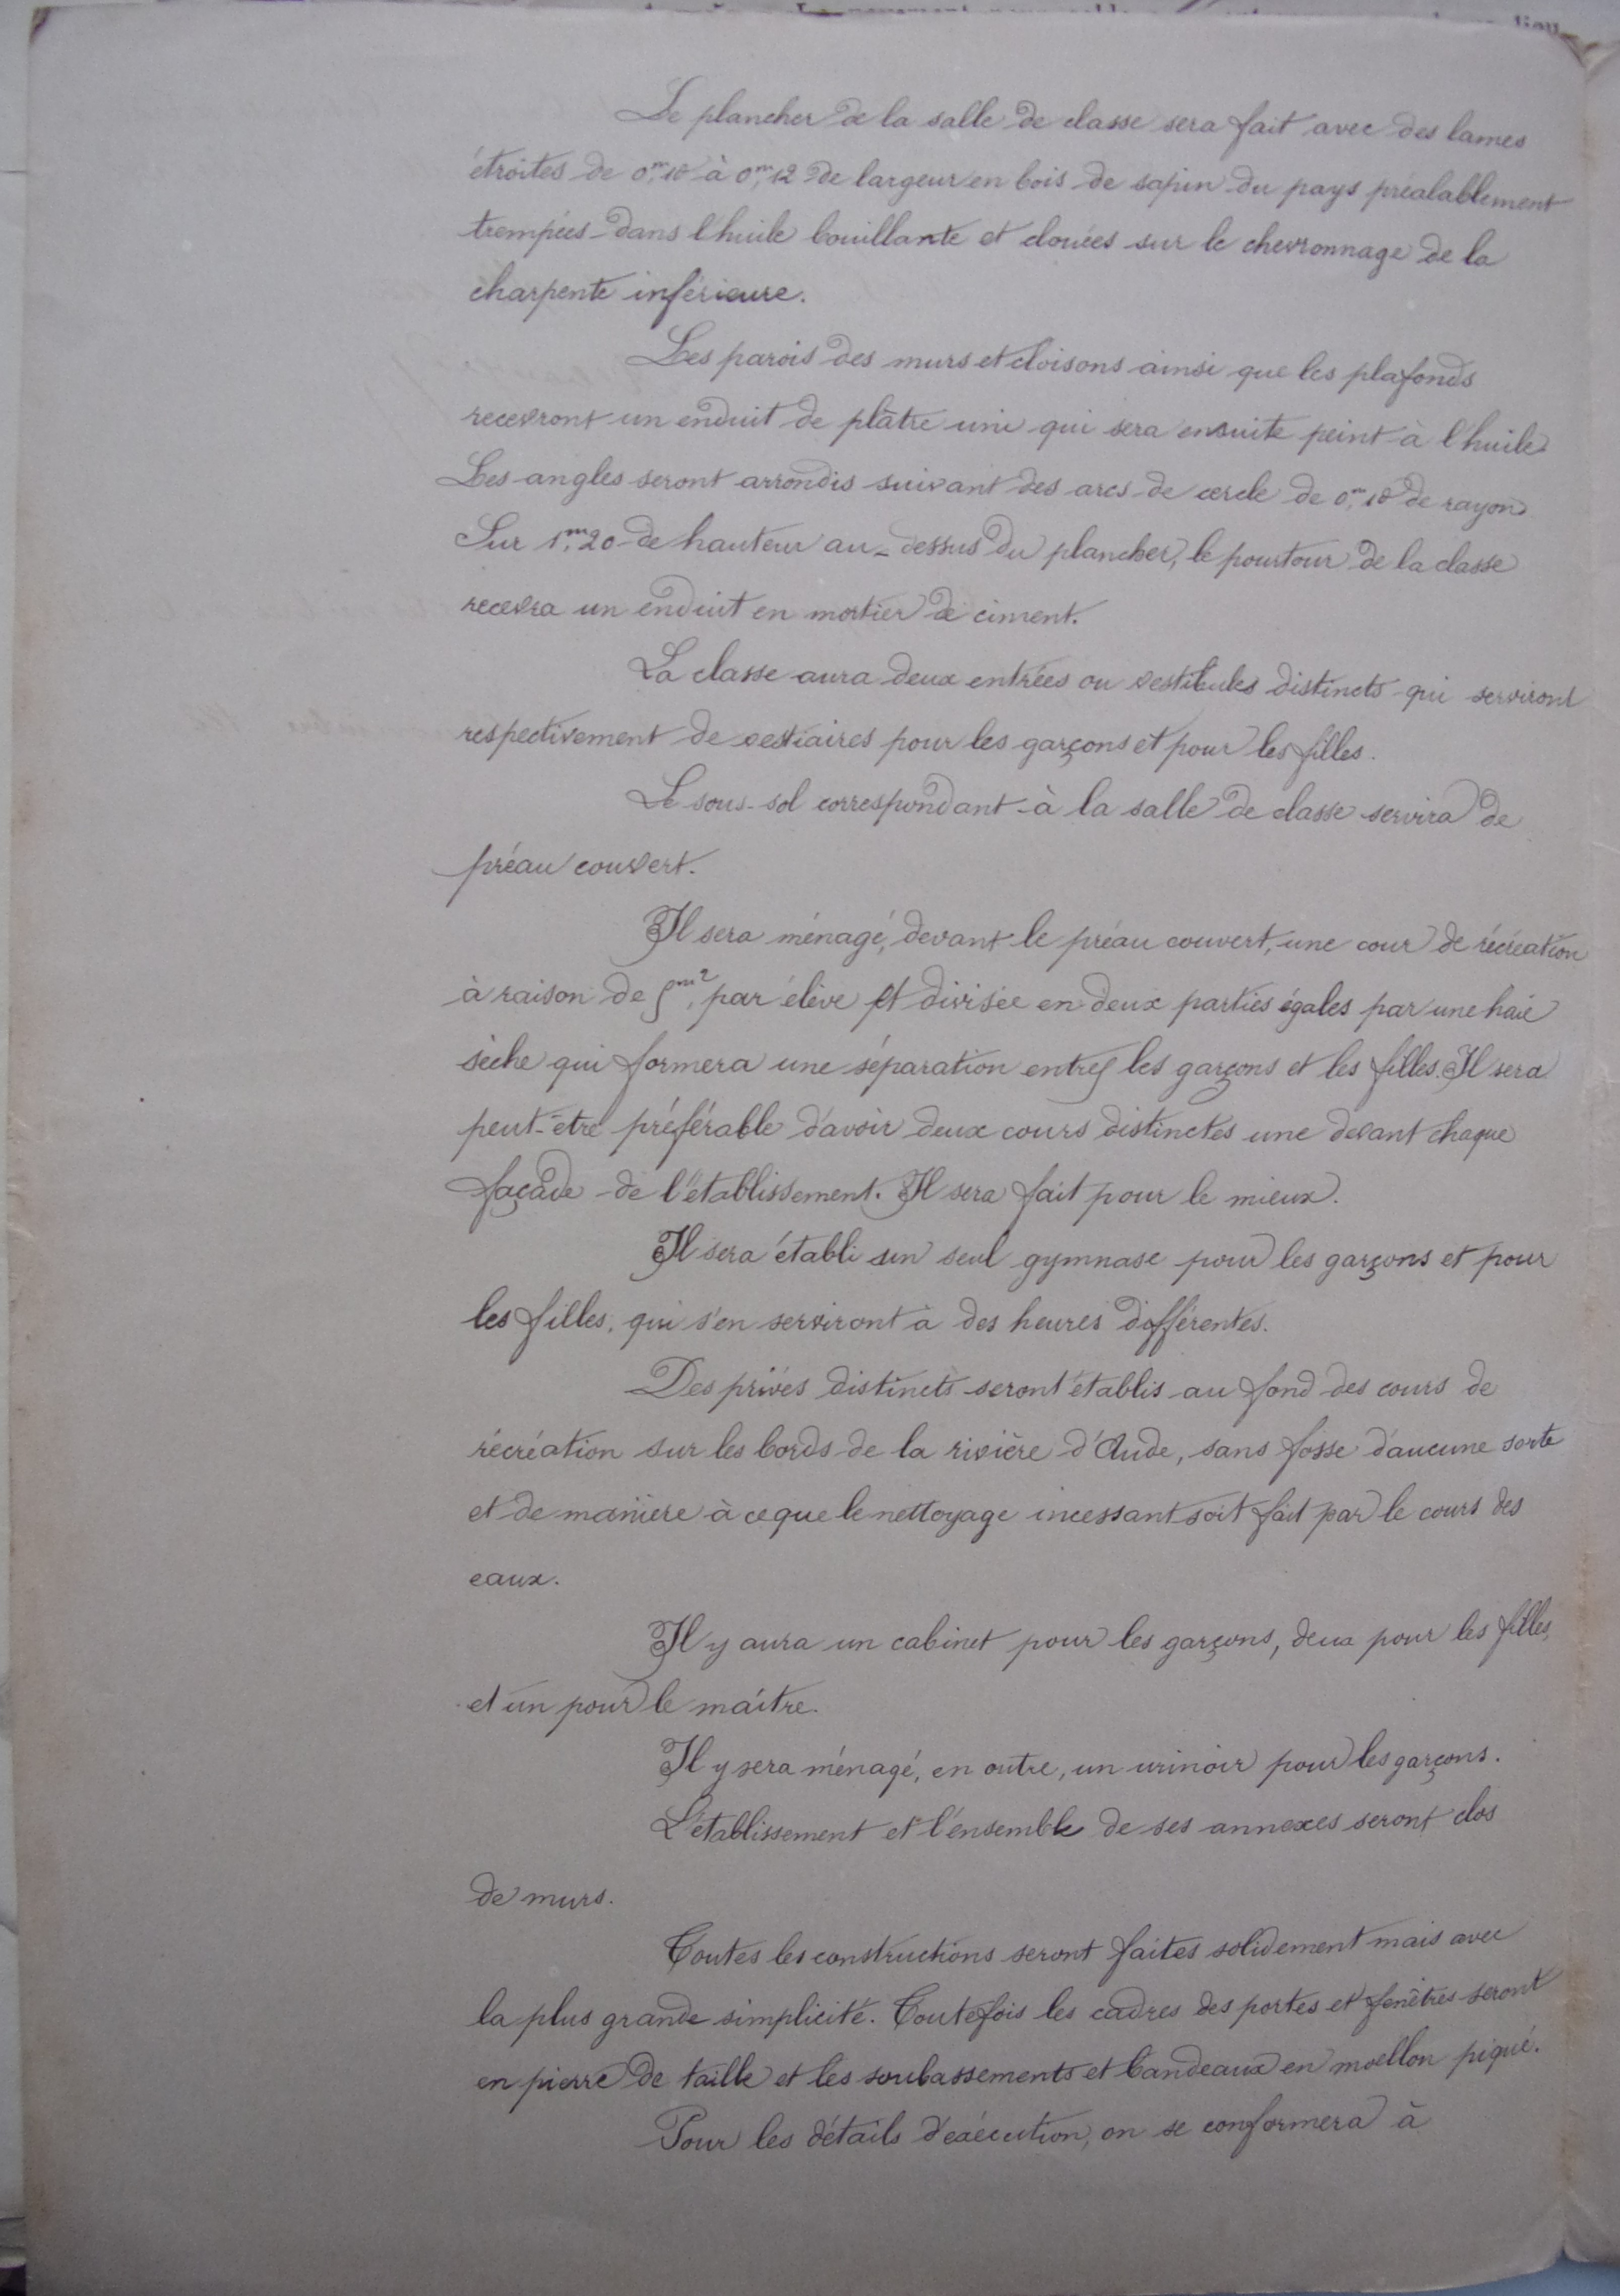 Le plancher de la salle de classe sera fait avec des lames
étroites de 0,m10 à 0,m12 de largeur en bois de sapin du pays préalablement
trempées dans l'huile bouillante et clouées sur le chevronnage de la
charpente inférieure.
Les parois des murs et cloisons ainsi que les plafonds
recevront un enduit de plâtre uni qui sera ensuite peint à l'huile.
Les angles seront arrondis suivant des arcs de cercle de 0,m10 de rayon
Sur 1,m20 de hauteur au-dessus du plancher, le pourtour de la classe
recevra un enduit en mortier de ciment.
La classe aura deux entrées ou vestibules distincts qui serviront
respectivement de vestiaires pour les garçons et pour les filles.
Le sous-sol correspondant à la salle de classe servira de
préau couvert.
Il sera ménagé, devant le préau couvert, une cour de récréation
à raison de 5m2, par élève et divisée en deux parties égales par une haie
sèche qui formera une séparation entre les garçons et les filles. Il sera
peut-être préférable d'avoir deux cours distinctes une devant chaque
façade de l'établissement. Il sera fait pour le mieux.
Il sera établi un seul gymnase pour les garçons et pour
les filles, qui s'en serviront à des heures différentes.
Des privés distincts seront établis au fond des cours de
récréation sur les bords de la rivière d'Aude, sans fosse d'aucune sorte
et de manière à ce que le nettoyage incessant soit fait par le cours des
eaux.
Il y aura un cabinet pour les garçons, deux pour les filles,
et un pour le maître.
Il y sera ménagé, en outre, un urinoir pour les garçons.
L'établissement et l'ensemble de ses annexes seront clos
de murs.
Toutes les constructions seront faites solidement mais avec
la plus grande simplicité. Toutefois les cadres des portes et fenêtres seront
en pierre de taille et les soubassements et bandeaux en moellon piqué.
Pour les détails d'exécution, on se conformera à